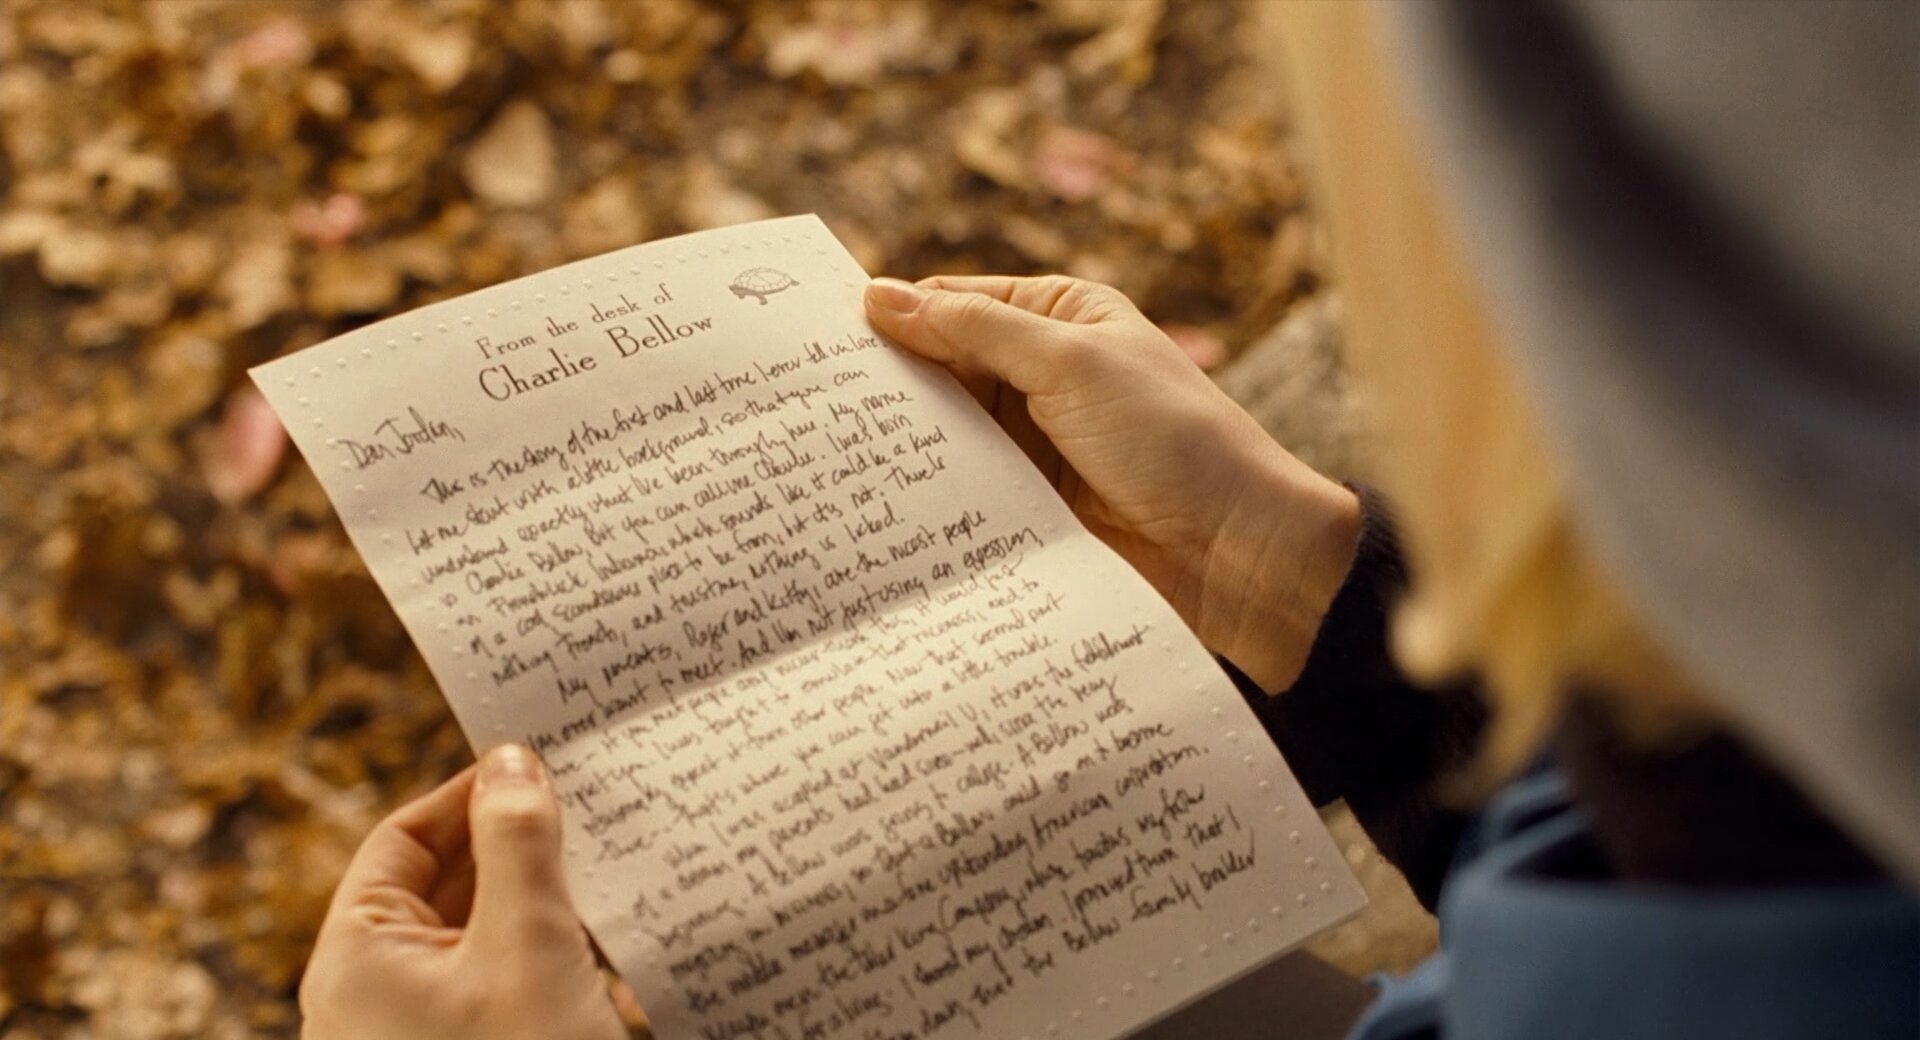 From the desk of
Charlie Bellow
Dear Jordan,
This is the story of the first and last time I ever fell in love.
Let me start with a little background, so that you can
understand exactly what I've been through, here. My name
is Charlie Bellow, but you can call me Charlie. I was born
in Frenchlick Indiana, which sounds like it could be a kind
of a cool scandalous place to be from, but it's not. There's
nothing French, and trust me, nothing is licked.
My parents, Roger and Kitty, are the nicest people
you ever want to meet. And I'm not just using an expression,
- if you met people any nicer than this, it would just
upset you. I was taught to emulate that niceness, and to
expect it from other people. Now that second part
there -- that's where you can get into a little trouble.
When I was accepted at Vanderbilt U, it was the fulfillment
of a dream my parents had had since -- well, since the
beginning. A Bellow was going to college. A Bellow was
majoring in business, so that a Bellow could go on to become
the middle manager in a fine upstanding American corporation.
I found my dream. I promised them that I
the Bellow family